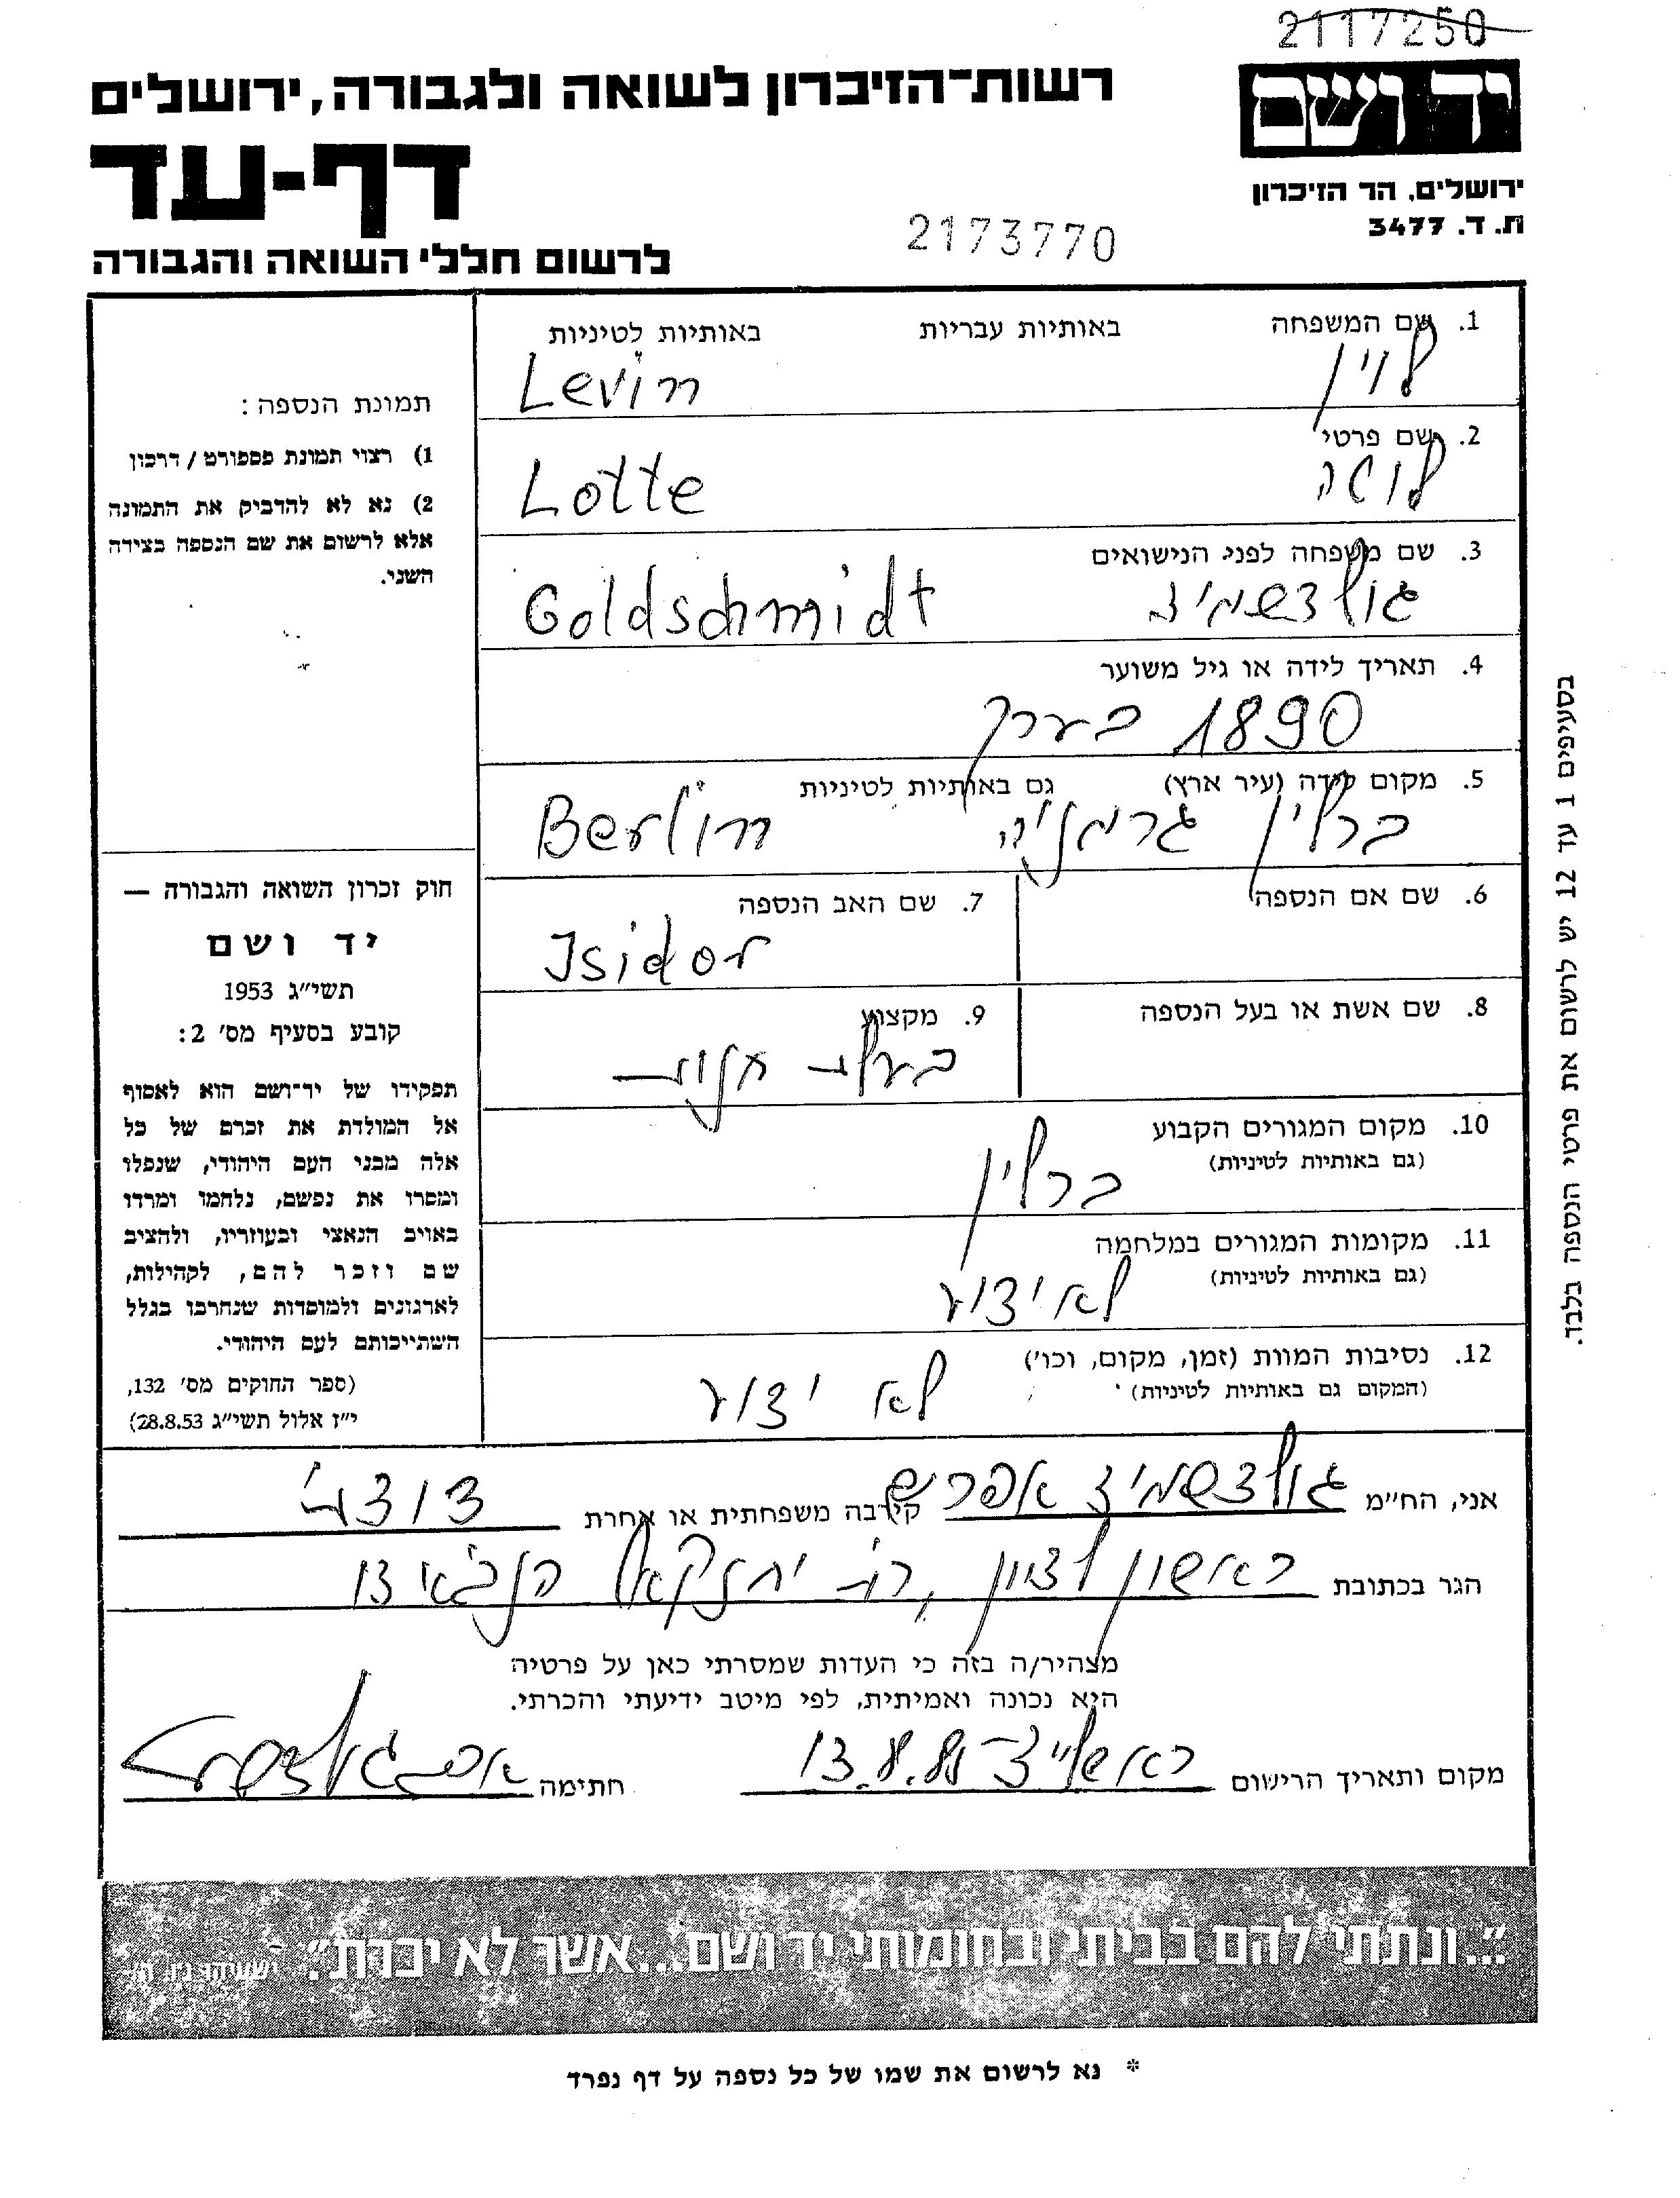 2117250
יד ושם
ירושלים, הר הזיכרון
ת. ד. 3477
רשות-הזיכרון לשואה ולגבורה, ירושלים
דף-עד
לרשום חללי השואה והגבורה
2173770
1. שם המשפחה באותיות עבריות באותיות לטיניות
לוין Levin
2. שם פרטי
לוטה Lotte
3. שם משפחה לפני הנישואים
גולדשמיד Goldschmidt
4. תאריך לידה או גיל משוער
1890 בערך
5. מקום לידה (עיר ארץ) גם באותיות לטיניות
ברלין גרמניה Berlin
6. שם אם הנספה 7. שם האב הנספה
Isidor
8. שם אשת או בעל הנספה 9. מקצוע
בעלת חנות
10. מקום המגורים הקבוע
(גם באותיות לטיניות)
ברלין
11. מקומות המגורים במלחמה
(גם באותיות לטיניות)
לא ידוע
12. נסיבות המוות (זמן, מקום, וכו')
(המקום גם באותיות לטיניות)
לא ידוע
תמונת הנספה:
1) רצוי תמונת פספורט / דרכון
2) נא לא להדביק את התמונה
אלא לרשום את שם הנספה בצידה
השני.
חוק זכרון השואה והגבורה —
יד ושם
תשי״ג 1953
קובע בסעיף מס' 2:
תפקידו של יד־ושם הוא לאסוף
אל המולדת את זכרם של כל
אלה מבני העם היהודי, שנפלו
ומסרו את נפשם, נלחמו ומרדו
באויב הנאצי ובעוזריו, ולהציב
שם וזכר להם, לקהילות,
לארגונים ולמוסדות שנחרבו בגלל
השתייכותם לעם היהודי.
(ספר החוקים מס' 132,
י״ז אלול תשי״ג 28.8.53)
בסעיפים 1 עד 12 יש לרשום את פרטי הנספה בלבד.
אני, הח״מ גולדשמיד אפרים קירבה משפחתית או אחרת דודתי
הגר בכתובת ראשון לציון, רח' יחזקאל הנביא 13
מצהיר/ה בזה כי העדות שמסרתי כאן על פרטיה
היא נכונה ואמיתית, לפי מיטב ידיעתי והכרתי.
מקום ותאריך הרישום ראשל״צ 13.8. חתימה
״...ונתתי להם בביתי ובחומותי יד ושם...אשר לא יכרת״. ישעיהו נ״ו ה'
* נא לרשום את שמו של כל נספה על דף נפרד